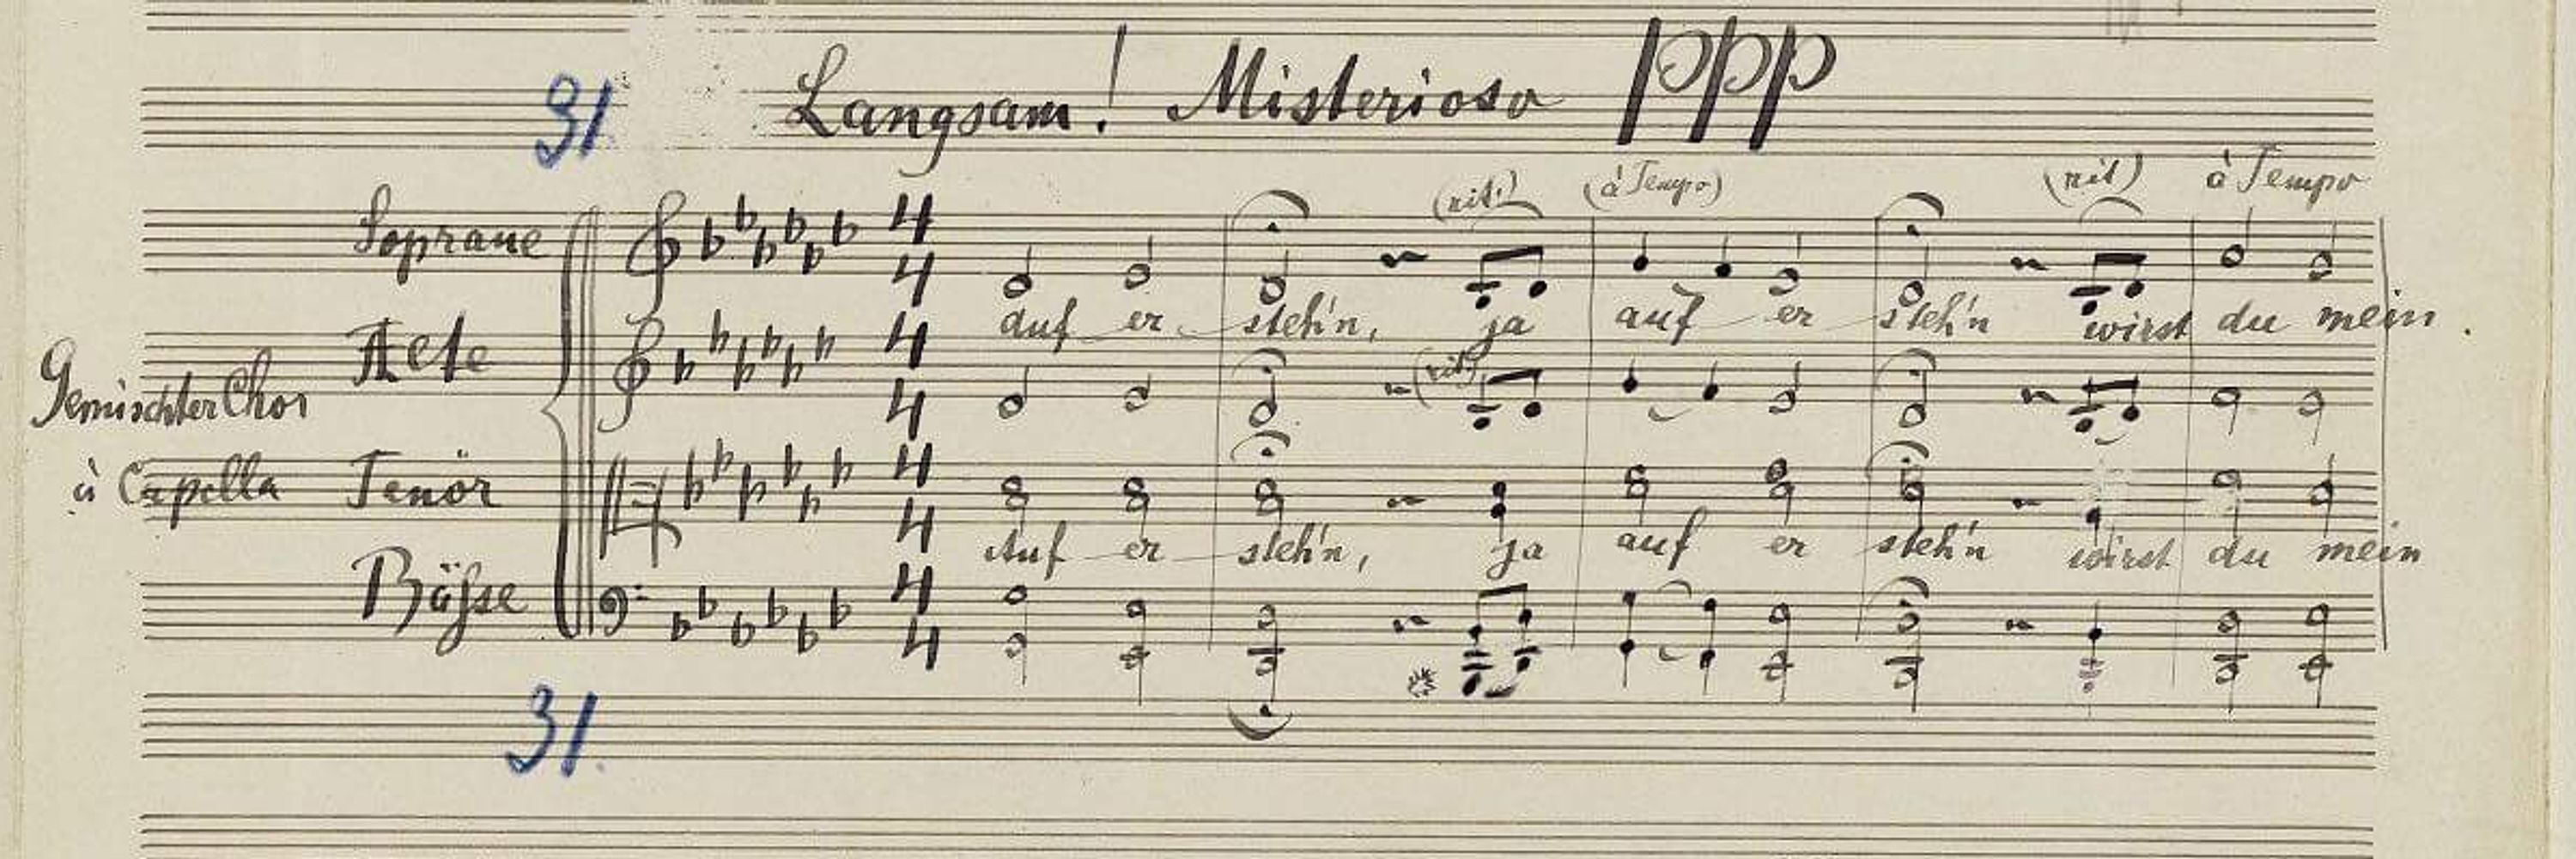 31
Langsam! Misterioso ppp
(rit.) (à Tempo) (rit) à Tempo
Soprane 4 4
auf er steh'n, ja auf er steh'n wirst du mein
Alte 4 4 (rit)
Gemischter Chor
à Capella Tenör 4 4
Auf er steh'n, ja auf er steh'n wirst du mein
Bäſse 4 4
31.